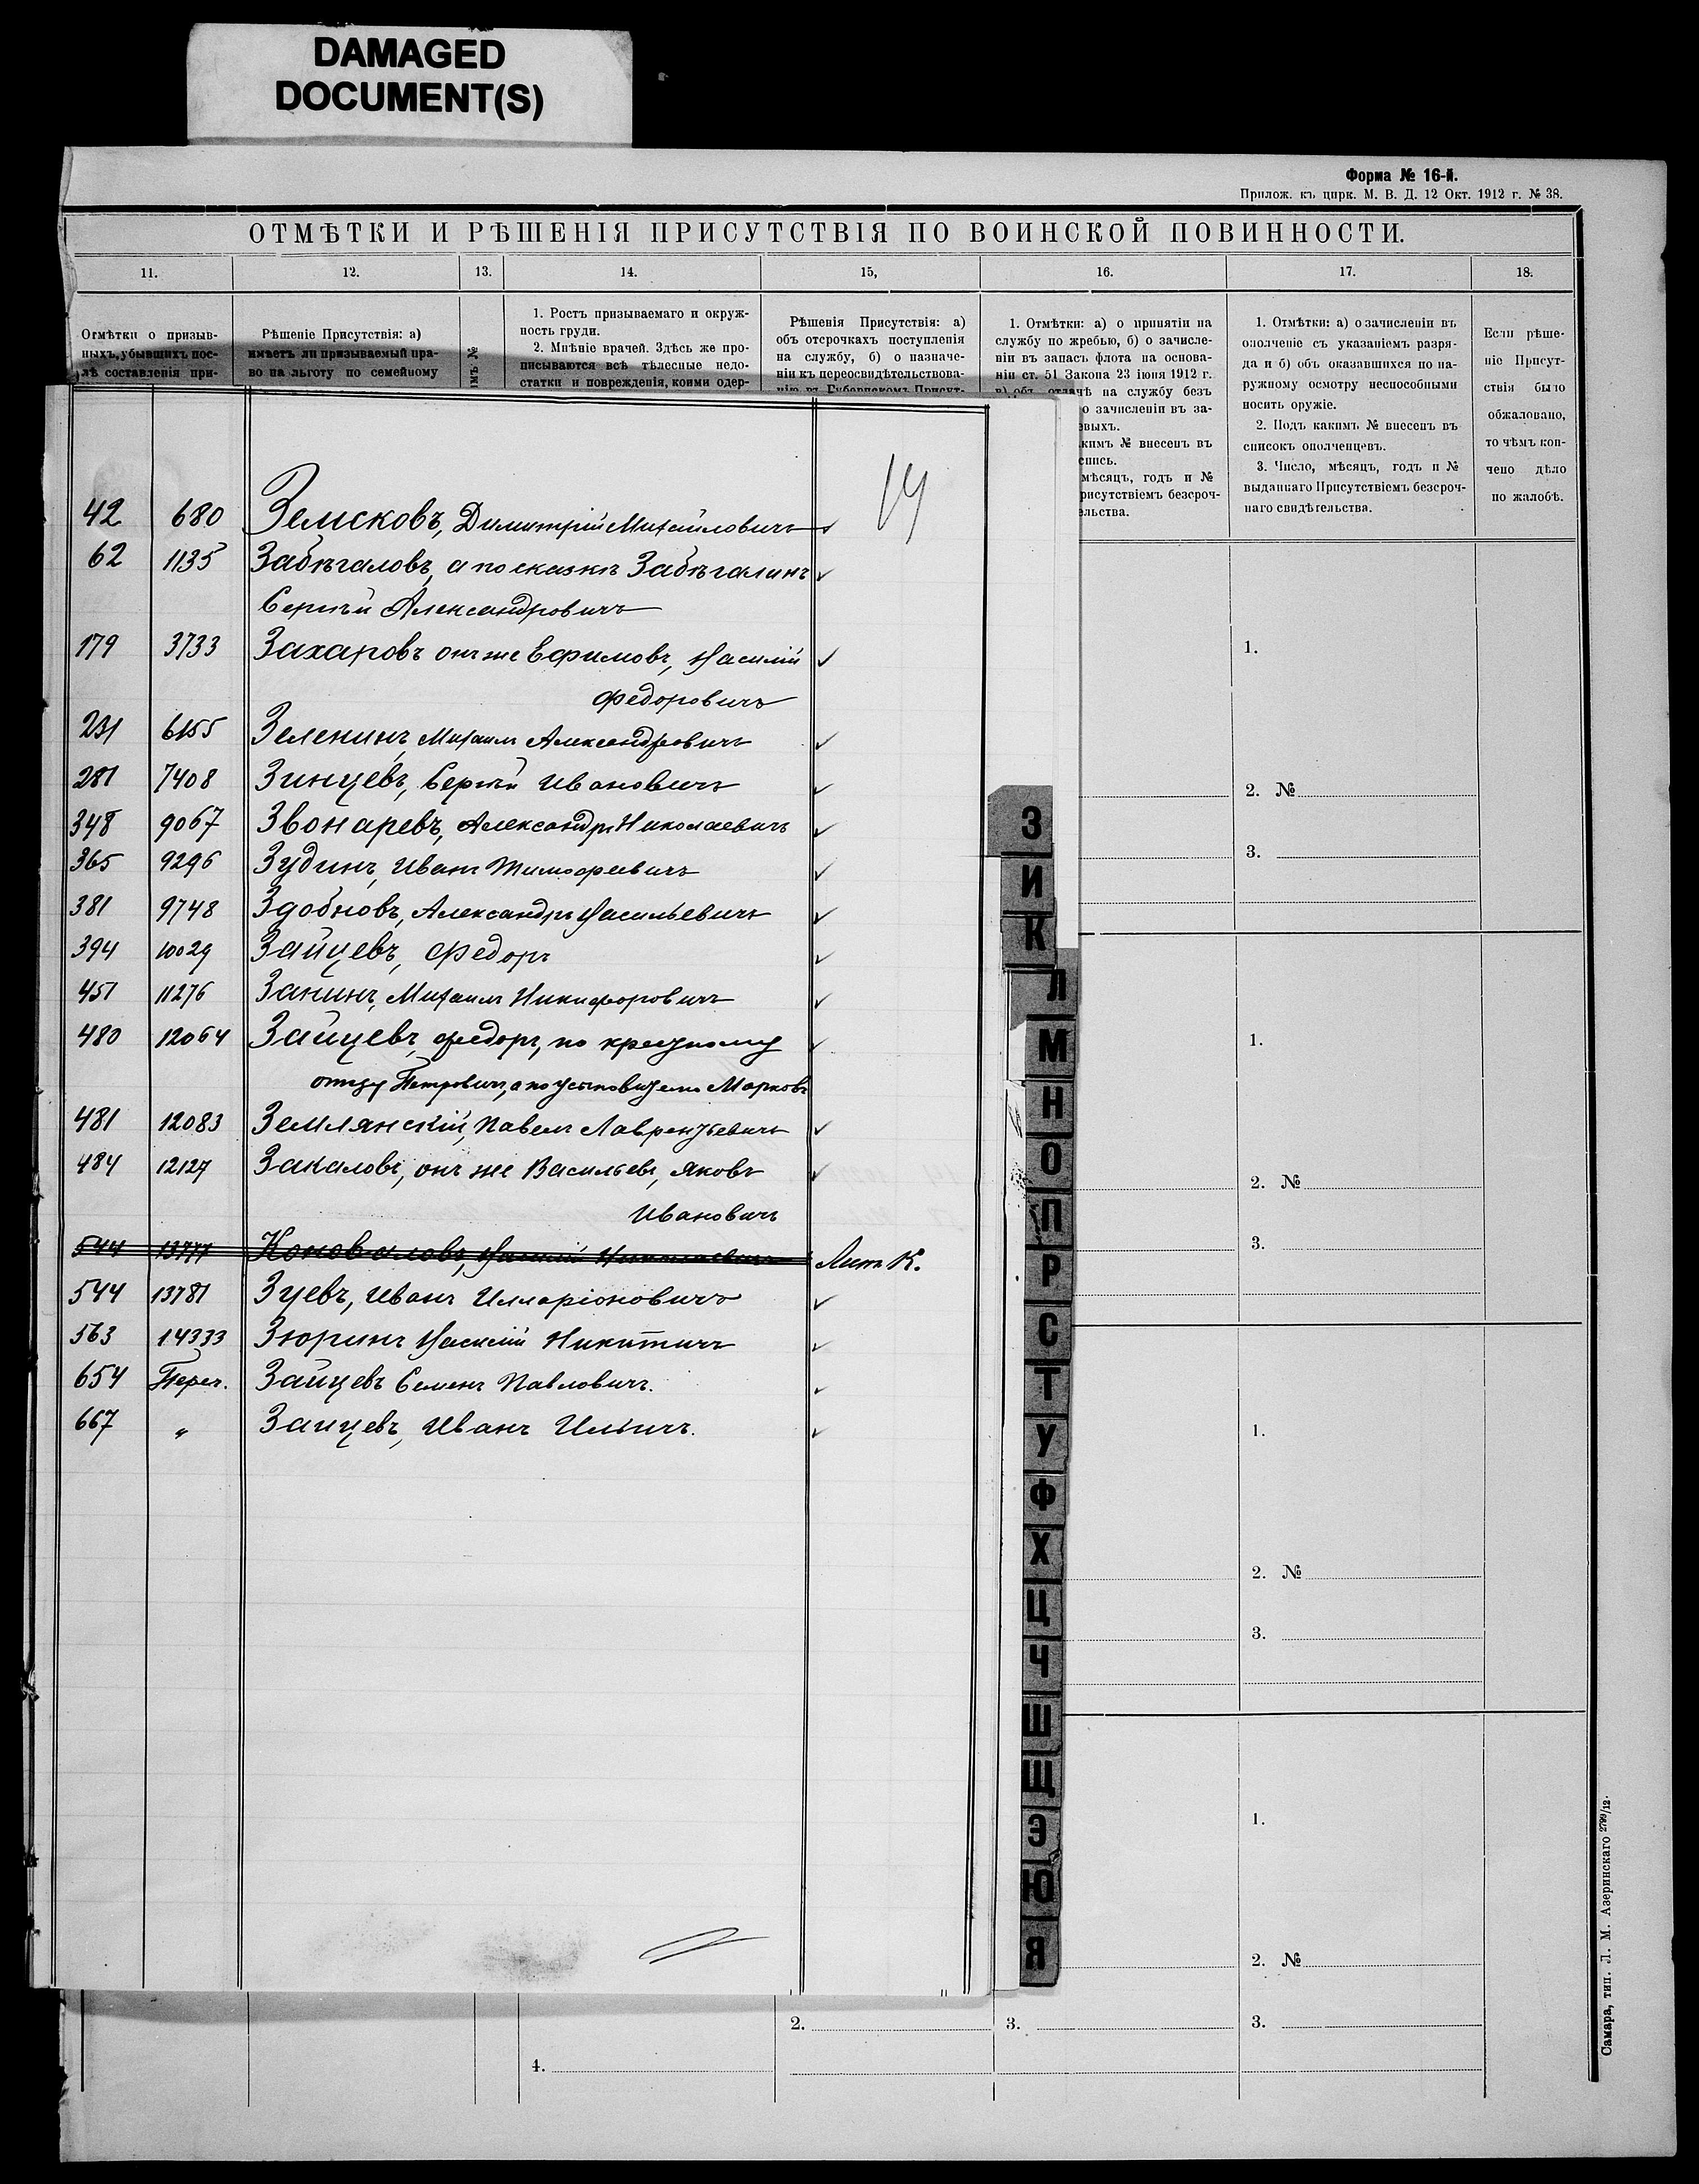 DAMAGED
DOCUMENT(S)
Форма № 16-й.
Прилож. къ цирк. М. В. Д. 12 Окт. 1912 г. № 38.
ОТМѢТКИ И РѢШЕНІЯ ПРИСУТСТВІЯ ПО ВОИНСКОЙ ПОВИННОСТИ.
11. 12. 13. 14. 15, 16. 17. 18.
Отмѣтки о призыв-
ныхъ, убывшихъ пос-
лѣ составленія при-
Рѣшеніе Присутствія: а)
имѣетъ ли призываемый пра-
во на льготу по семейному
имъ №
1. Ростъ призываемаго и окруж-
ность груди.
2. Мнѣніе врачей. Здѣсь же про-
писываются всѣ тѣлесные недо-
статки и поврежденія, коими одер-
Рѣшенія Присутствія: а)
объ отсрочкахъ поступленія
на службу, б) о назначе-
ніи къ переосвидѣтельствова-
нію въ Губернскомъ Присут-
1. Отмѣтки: а) о принятіи на
службу по жребью, б) о зачисле-
ніи въ запасъ флота на основа-
ніи ст. 51 Закона 23 іюня 1912 г.
в) объ отдачѣ на службу безъ
о зачисленіи въ за-
выхъ.
кимъ № внесенъ въ
спись.
мѣсяцъ, годъ и №
рисутствіемъ безсроч-
ельства.
1. Отмѣтки: а) о зачисленіи въ
ополченіе съ указаніемъ разря-
да и б) объ оказавшихся по на-
ружному осмотру неспособными
носить оружіе.
2. Подъ какимъ № внесенъ въ
списокъ ополченцевъ.
3. Число, мѣсяцъ, годъ и №
выданнаго Присутствіемъ безсроч-
наго свидѣтельства.
Если рѣше-
ніе Присут-
ствія было
обжаловано,
то чѣмъ кон-
чено дѣло
по жалобѣ.
42 680 Земсковъ, Димитрій Михайловичъ
62 1135 Забѣгаловъ, а по сказкѣ Забѣгалинъ
Сергѣй Александровичъ
179 3733 Захаровъ онъ же Ефимовъ, Василій
Федоровичъ
231 6155 Зеленинъ, Михаилъ Александровичъ
281 7408 Зинцевъ, Сергѣй Ивановичъ
348 9067 Звонаревъ, Александръ Николаевичъ
365 9296 Зудинъ, Иванъ Тимофеевичъ
381 9748 Здобновъ, Александръ Васильевичъ
394 10029 Зайцевъ, Федоръ
451 11276 Занинъ, Михаилъ Никифоровичъ
480 12064 Зайцевъ, Федоръ, по крестному
отцу Петровичъ, а по усыновителю Марковъ
481 12083 Землянскій, Павелъ Лаврентьевичъ
484 12127 Закаловъ, онъ же Васильевъ, Яковъ
Ивановичъ
544 13777 Коноваловъ, Василій Николаевичъ Лит. К.
544 13781 Зуевъ, Иванъ Илларіоновичъ
563 14333 Зюринъ Василій Никитичъ
654 Переч. Зайцевъ Семенъ Павловичъ.
667 " Зайцевъ, Иванъ Ильичъ.
З
И
К
Л
М
Н
О
П
Р
С
Т
У
Ф
Х
Ц
Ч
Ш
Щ
Э
Ю
Я
1.
2. №
3.
1.
2. №
3.
1.
2. №
3.
1.
2. №
3.
2.
3.
4.
Самара, тип. Л. М. Азеринскаго 2799/12.